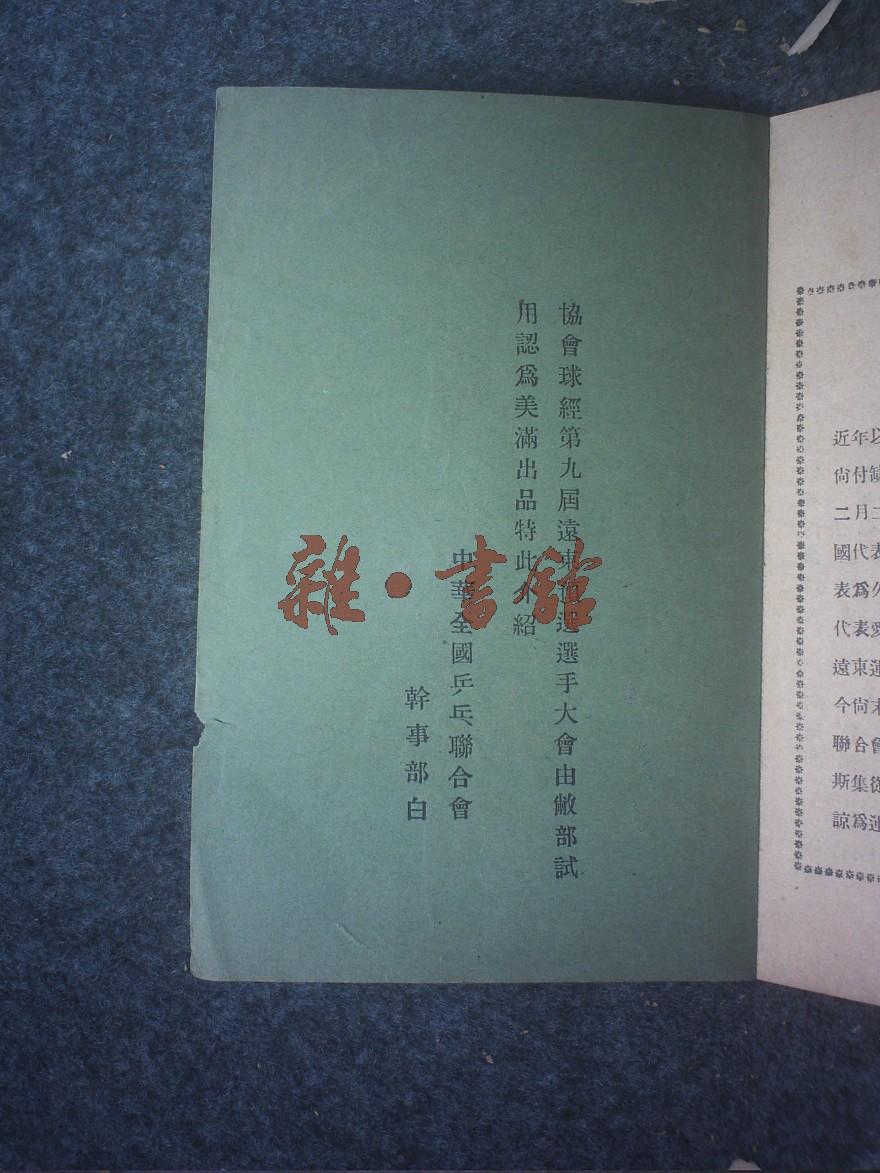 協會球經第九屆遠東預選選手大會由敝部試
用認爲美滿出品特此介紹
中華全國乒乓聯合會
幹事部白
雜·書館
近年以
尙付
二月二
國代表
表爲
代表愛
遠東運
今尙未
聯合會
斯集
諒爲